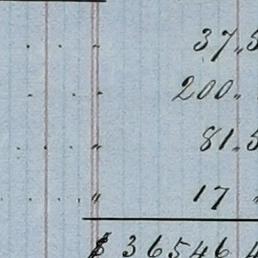 " 37.5
" 200.
" 81.5
" 17 "
$ 36546.4